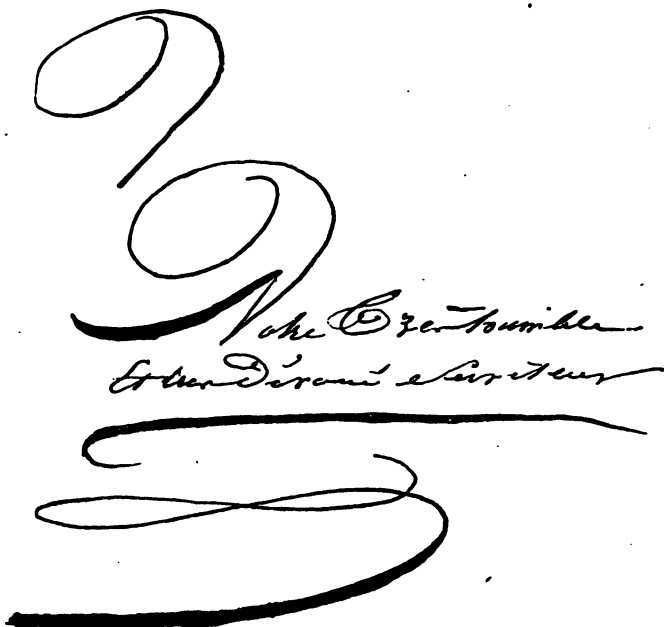 Votre Très humble
Et très Dévoué Serviteur